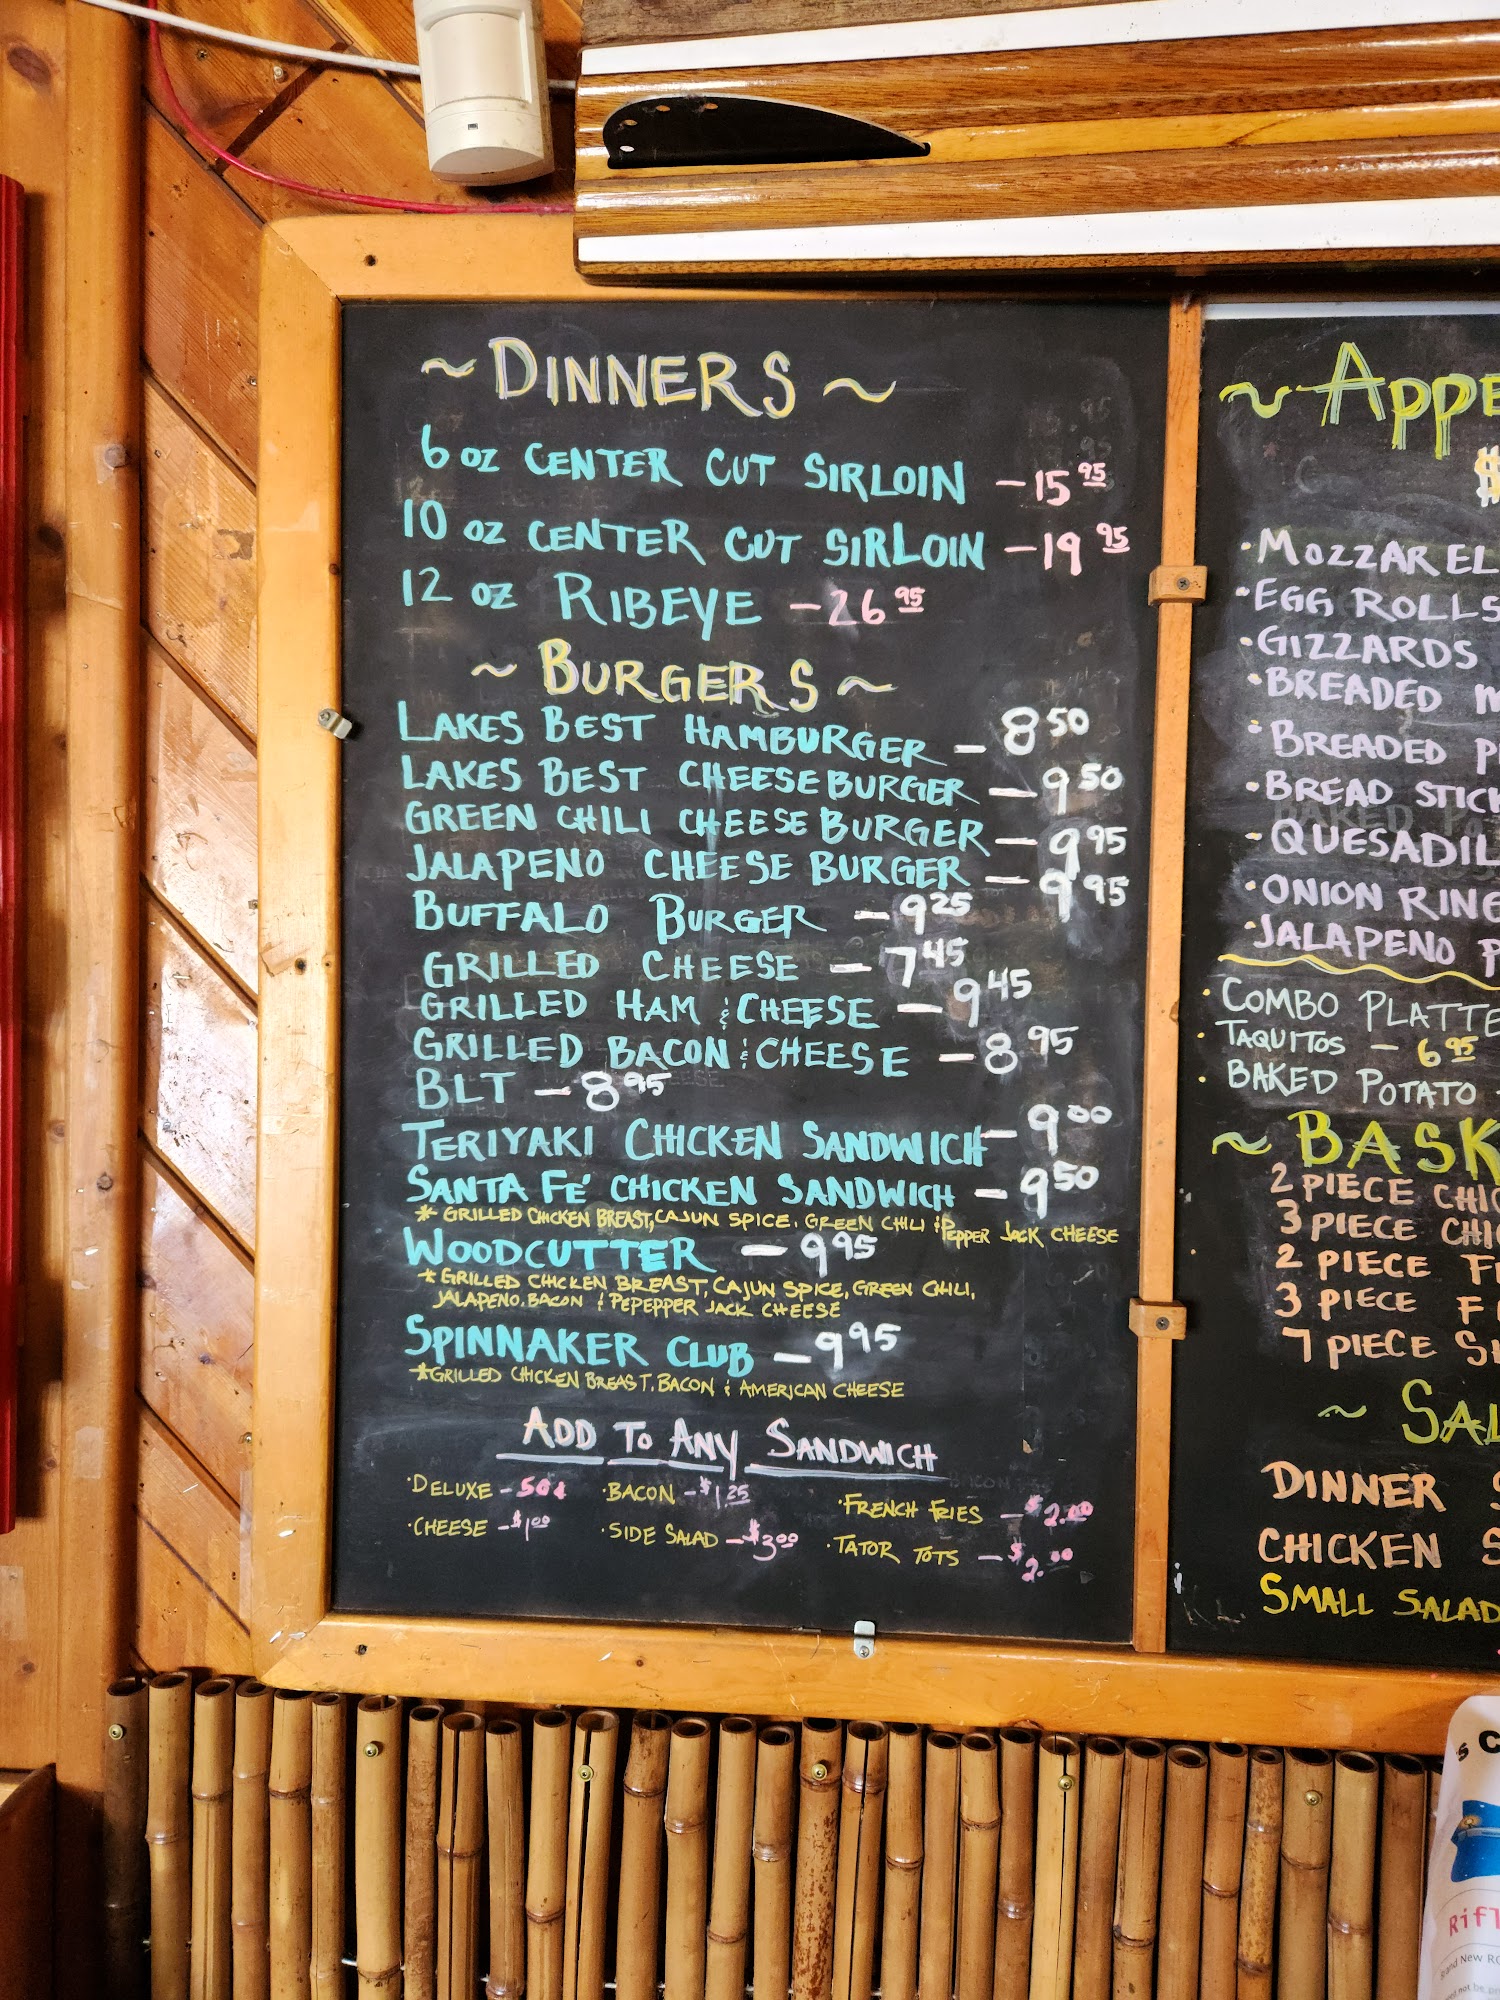 ~ DINNERS ~
6 oz CENTER CUT SIRLOIN - 15 95
10 oz CENTER CUT SIRLOIN - 19 95
12 oz RIBEYE - 26 95
~ BURGERS ~
LAKES BEST HAMBURGER - 8 50
LAKES BEST CHEESEBURGER - 9 50
GREEN CHILI CHEESEBURGER - 9 95
JALAPENO CHEESE BURGER - 9 95
BUFFALO BURGER - 9 25
GRILLED CHEESE - 7 45
GRILLED HAM & CHEESE - 9 45
GRILLED BACON & CHEESE - 8 95
BLT - 8 95
TERIYAKI CHICKEN SANDWICH - 9 00
SANTA FÉ CHICKEN SANDWICH - 9 50
* GRILLED CHICKEN BREAST, CAJUN SPICE, GREEN CHILI & PEPPER JACK CHEESE
WOODCUTTER - 9 95
* GRILLED CHICKEN BREAST, CAJUN SPICE, GREEN CHILI,
JALAPENO, BACON & PEPEPPER JACK CHEESE
SPINNAKER CLUB - 9 95
* GRILLED CHICKEN BREAST, BACON & AMERICAN CHEESE
ADD TO ANY SANDWICH
· DELUXE - 50¢ · BACON - $1.25 · FRENCH FRIES - $2.00
· CHEESE - $1 00 · SIDE SALAD - $3 00 · TATOR TOTS - $2.00
~ APPE
$
· MOZZAREL
· EGG ROLLS
· GIZZARDS
· BREADED M
· BREADED P
· BREAD STICK
· QUESADIL
· ONION RING
· JALAPENO P
· COMBO PLATTE
· TAQUITOS - 6 95
· BAKED POTATO -
~ BASK
2 PIECE CHIC
3 PIECE CHIC
2 PIECE FI
3 PIECE F
7 PIECE SH
~ SAL
DINNER S
CHICKEN S
SMALL SALAD
s C
Rifl
Brand New RO